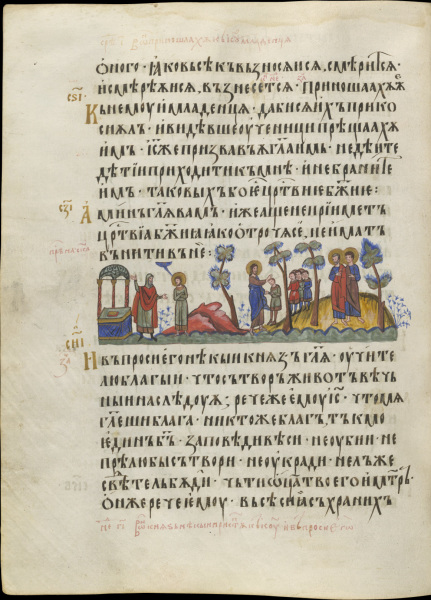 оного · ꙗко вьсѣкъ възносѧисѧ, съмѣритсѧ ·
и съмѣрѣѧисѧ, възнесетсѧ · Приношаахѫ же
къ немоу и младенцѧ · да би сѧ ихъ прико
снѫлъ · и видѣвше оученици прѣщаахѫ
имъ · і҃с же призвавъ ѧ глааше имъ · не дѣите
дѣтіи приходити къ мнѣ · и не браните
имъ · таковыхъ бо е҆ цр҃твїе бж҃їе :
Аминь гл҃ѫ вамъ · иже аще не прїиметъ
цр҃твїа бж҃їа ꙗко отрочѧ се · не иматъ
вънити въ не :
И въпроси его нѣкыи кнѧзъ гл҃ѧ · оучите
лю благыи · что сътворь животъ вѣчь
ныи наслѣдоуѫ ; рече же емоу і҃с · что мѧ
гл҃еши блага · никтоже благъ, тъкмо
единъ б҃ъ · заповѣди вѣси · не оубии · не
прѣлюбы сътвори · не оукради · не лъже
свѣдѣтель бѫди · чьти ѡ҃ца твоего и мт҃рь
онъ же рече емоу · вьсѣ сиа съхранихъ